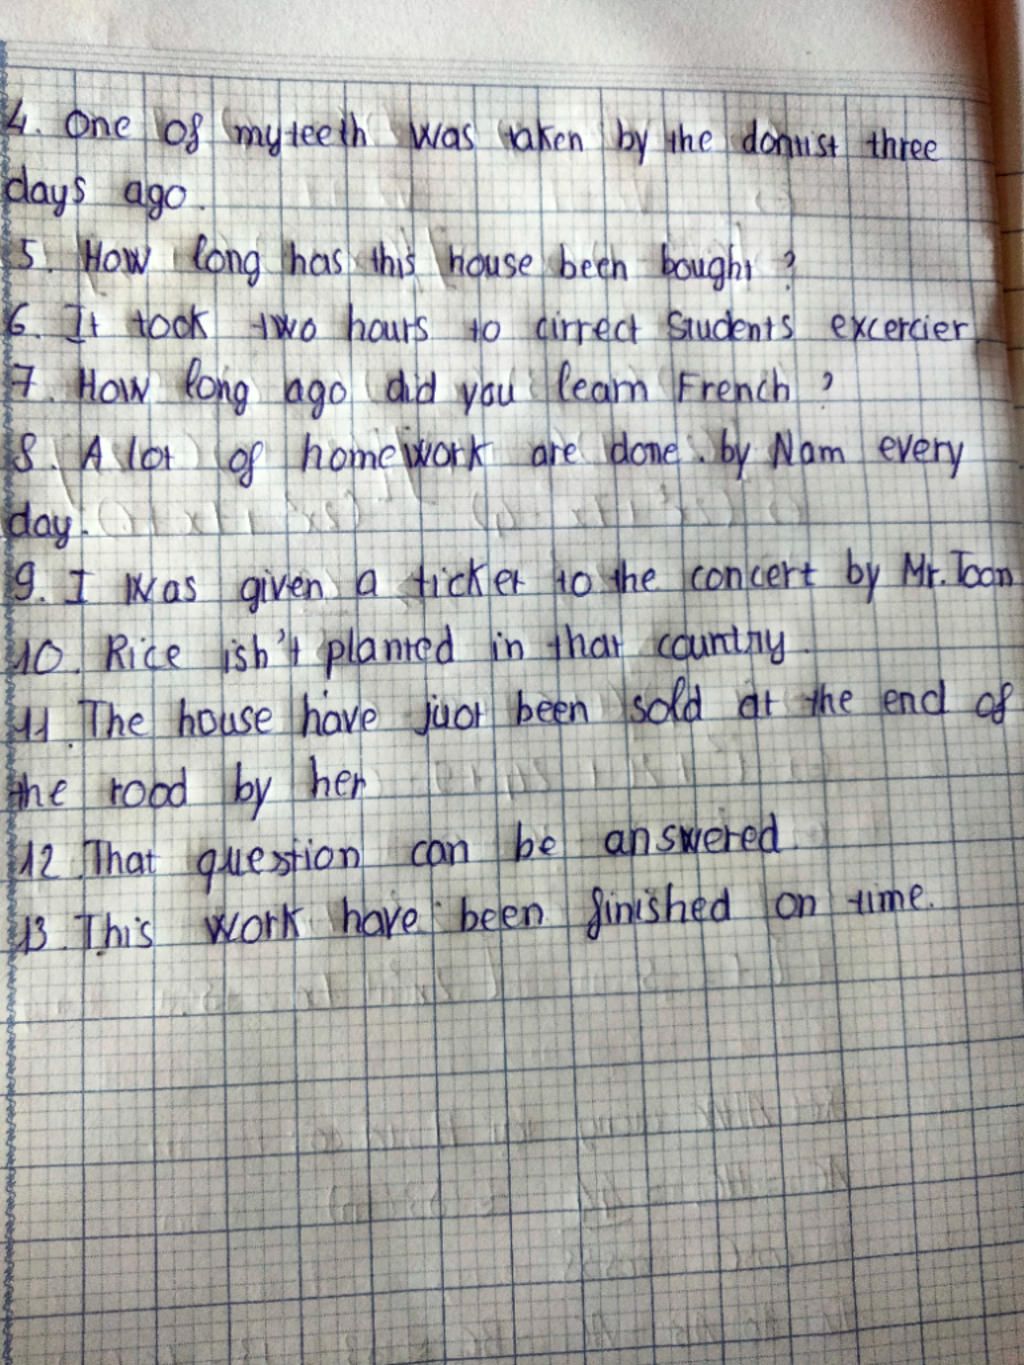 4. One of my teeth was taken by the dontist three
days ago.
5. How long has this house been bought ?
6. It took two hours to cirrect students excercier
7. How long ago did you learn French ?
8. A lot of homework are done by Nam every
day.
9. I was given a ticket to the concert by Mr. Toan
10. Rice isn't planted in that country.
11. The house have just been sold at the end of
the road by her
12. That question can be answered.
13. This work have been finished on time.